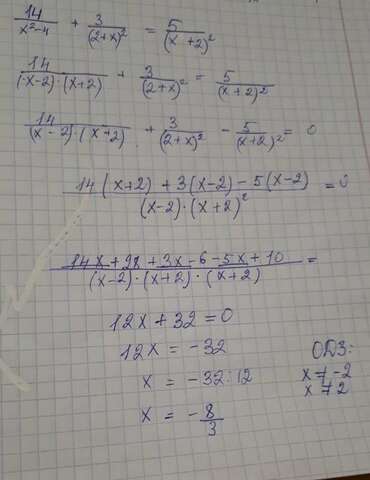 14/(x²-4) + 3/(2+x)² = 5/(x+2)²
14/((x-2)·(x+2)) + 3/(2+x)² = 5/(x+2)²
14/((x-2)·(x+2)) + 3/(2+x)² - 5/(x+2)² = 0
(14(x+2)+3(x-2)-5(x-2))/((x-2)·(x+2)²) = 0
(14x+28+3x-6-5x+10)/((x-2)·(x+2)·(x+2)) =
12x+32=0
12x = -32
x = -32:12
x = -8/3
ОДЗ:
x≠-2
x≠2